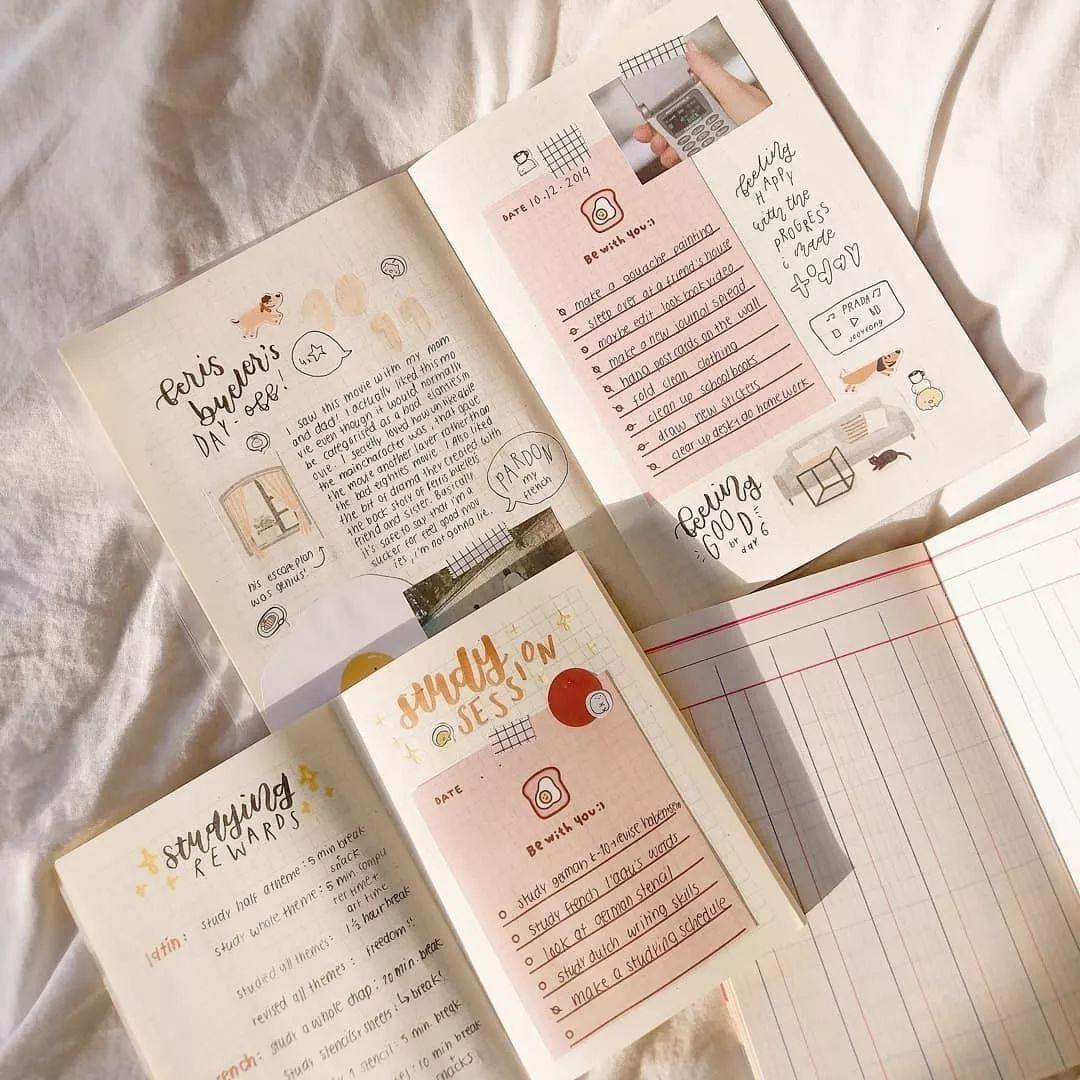 feris
bueler's
DAY-OFF!
I saw this movie with my mom
and dad. I actually liked this mo
vie even though it would normally
be categorised as a bad eighties m
ovie. I secretly loved how unlivable
the maincharacter was, that gave
the movie another layer rather than
the bad eighties movie. I also liked
the bit of drama they created with
the back story of Ferris buelers
friend and sister. Basically
it's safe to say that i'm a
sucker for feel good mov
ies, i'm not gonna lie.
PARDON
my
french
his escapeplan
was genius!
DATE 10.12.2019
Be with you:)
make a gouache painting
sleep over at a friend's house
maybe edit lookbook video
make a new journal spread
hang postcards on the wall
fold clean clothing
clean up schoolbooks
draw new stickers
clear up desk & do homework
feeling
HAPPY
with the
PROGRESS
i made
♫ PRADA ♫
jooyeong
feeling
GOOD
day 6
studying
REWARDS
latin: study half a theme: 5 min break
snack
study whole theme: 5 min. compu
ter time +
art time
studied all themes: 1 ½ hour break
revised all themes: freedom!!
french: study a whole chap: 20 min. break
study stencils + sheets: ↳ break!
1 stencil: 5 min. break
: 10 min. break
+ snacks!
study
SESSION
DATE
Be with you:)
study german
study french
look at german stencil
study dutch writing skills
make a studying schedule